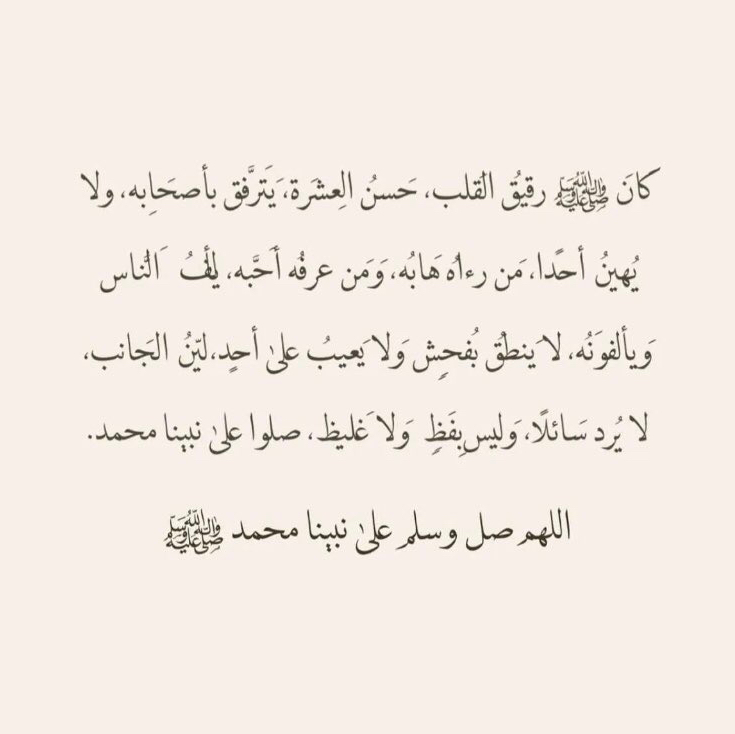 كانَ ﷺ رقيقُ القلب، حَسنُ العِشرَة، يَتَرفَّق بأصحَابِه، ولا
يُهينُ أحدًا، مَن رءاُه هَابُه، وَمَن عرفُه أحَّبه، يألُفُ الَنَّاس
وَيألفوَنُه، لا يَنطقُ بُفحِشٍ وَلا يَعيبُ علىٰ أحدٍ، ليّنُ الجَانب،
لا يُرد سَائلًا، وَليس بِفَظٍ وَلا غَليظ، صلوا علىٰ نبينا محمد.
اللهم صل وسلم علىٰ نبينا محمد ﷺ